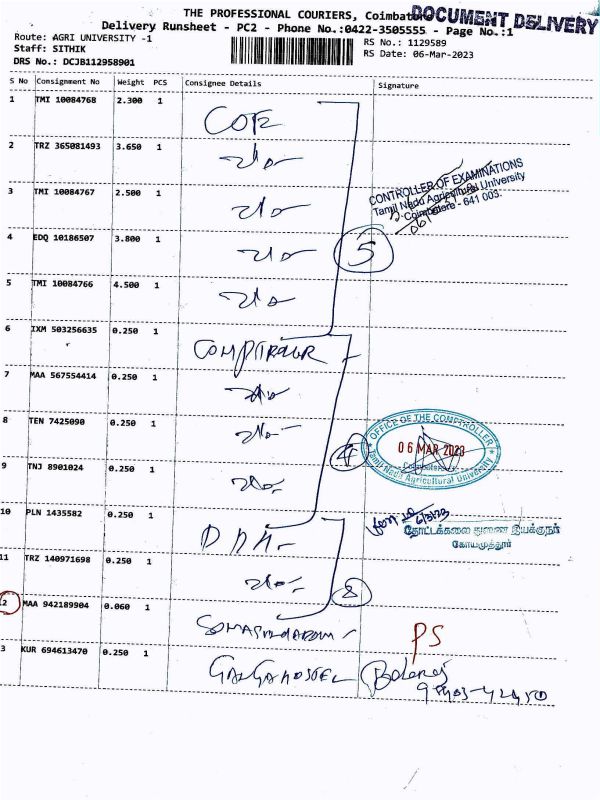 THE PROFESSIONAL COURIERS, Coimbatore
DOCUMENT DELIVERY
Delivery Runsheet - PC2 - Phone No.:0422-3505555 - Page No.:1
Route: AGRI UNIVERSITY -1
RS No.: 1129589
Staff: SITHIK
RS Date: 06-Mar-2023
DRS No.: DCJB112958901
S No Consignment No Weight PCS Consignee Details Signature
1 TMI 10084768 2.300 1
COE
2 TRZ 365081493 3.650 1
3 TMI 10084767 2.500 1
CONTROLLER OF EXAMINATIONS
Tamil Nadu Agricultural University
Coimbatore - 641 003.
4 EDQ 10186507 3.800 1
5
5 TMI 10084766 4.500 1
6 IXM 503256635 0.250 1
COMPTROLLER
7 MAA 567554414 0.250 1
8 TEN 7425090 0.250 1
OFFICE OF THE COMPTROLLER
06 MAR 2023
Tamil Nadu Agricultural University
4
9 TNJ 8901024 0.250 1
10 PLN 1435582 0.250 1
6/3/23
தோட்டக்கலை துணை இயக்குநர்
கோயமுத்தூர்
11 TRZ 140971698 0.250 1
12 MAA 942189904 0.060 1
PS
3 KUR 694613470 0.250 1